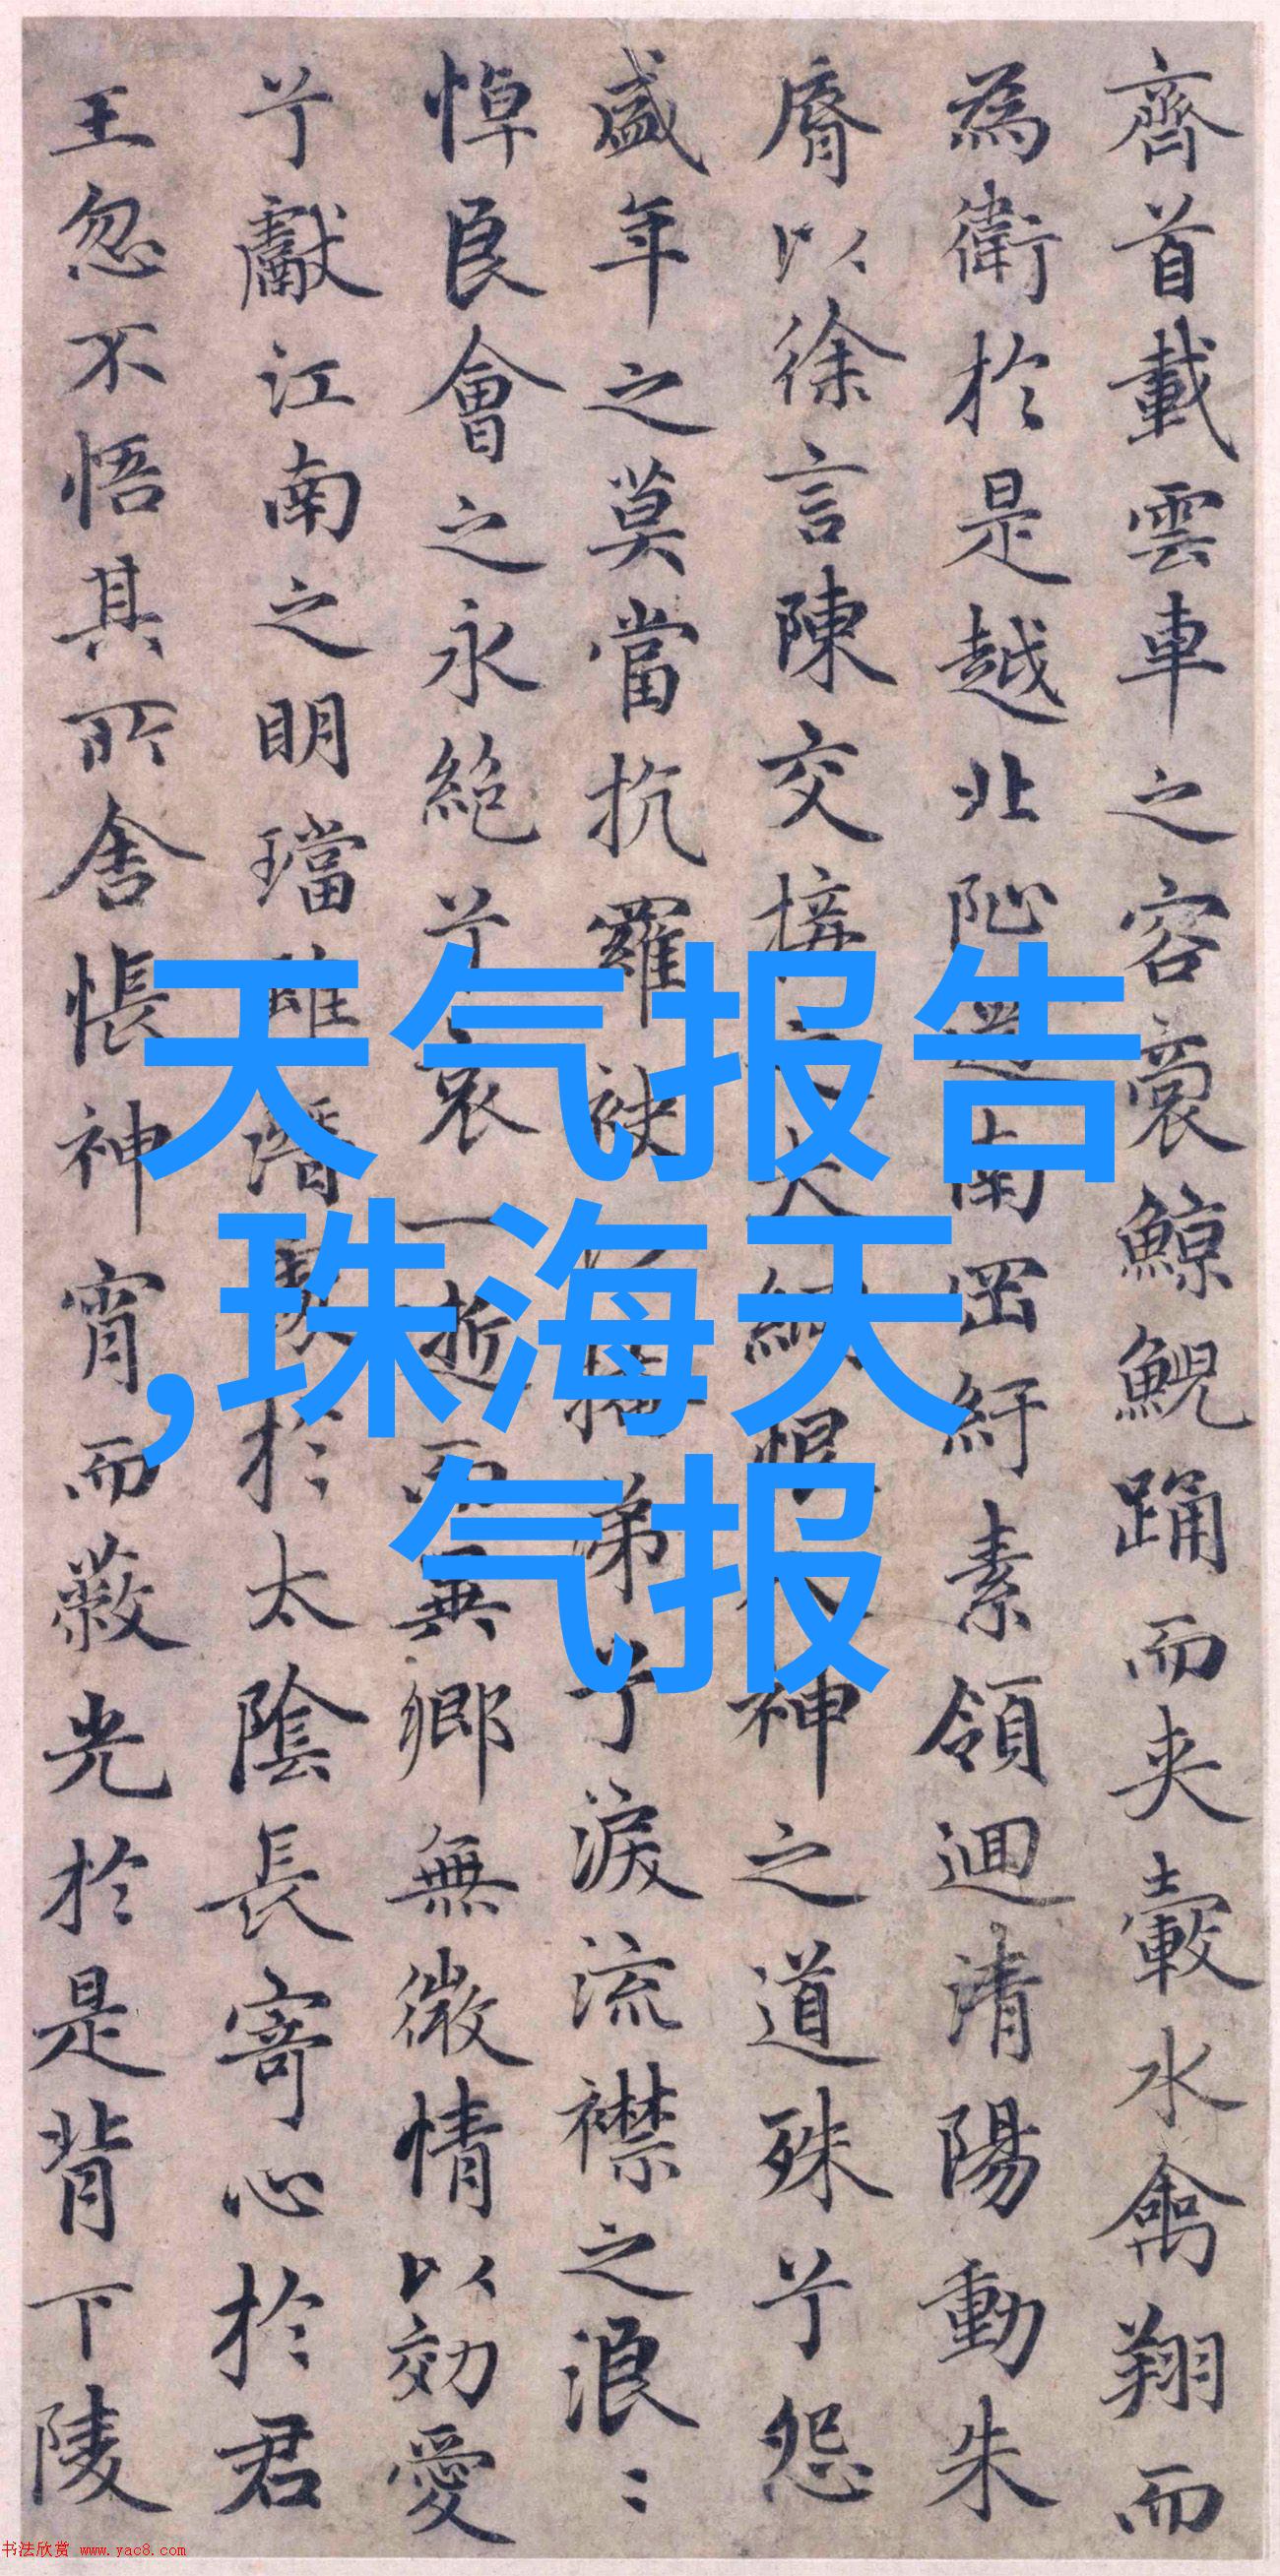 齊首載雲車之容裔鯨鯢踊而夾轂水禽翔而
為衛於是越北阯過南岡紆素領迴清陽動朱
脣以徐言陳交接之大綱恨人神之道殊兮怨
盛年之莫當抗羅袂以掩涕兮淚流襟之浪〻
悼良會之永絕兮哀一逝而異鄉無微情以効愛
兮獻江南之明璫雖潛處於太陰長寄心於君
王忽不悟其所舍悵神宵而蔽光於是背下陵
天气报告
,珠海天
气报
书法欣赏 www.yac8.com